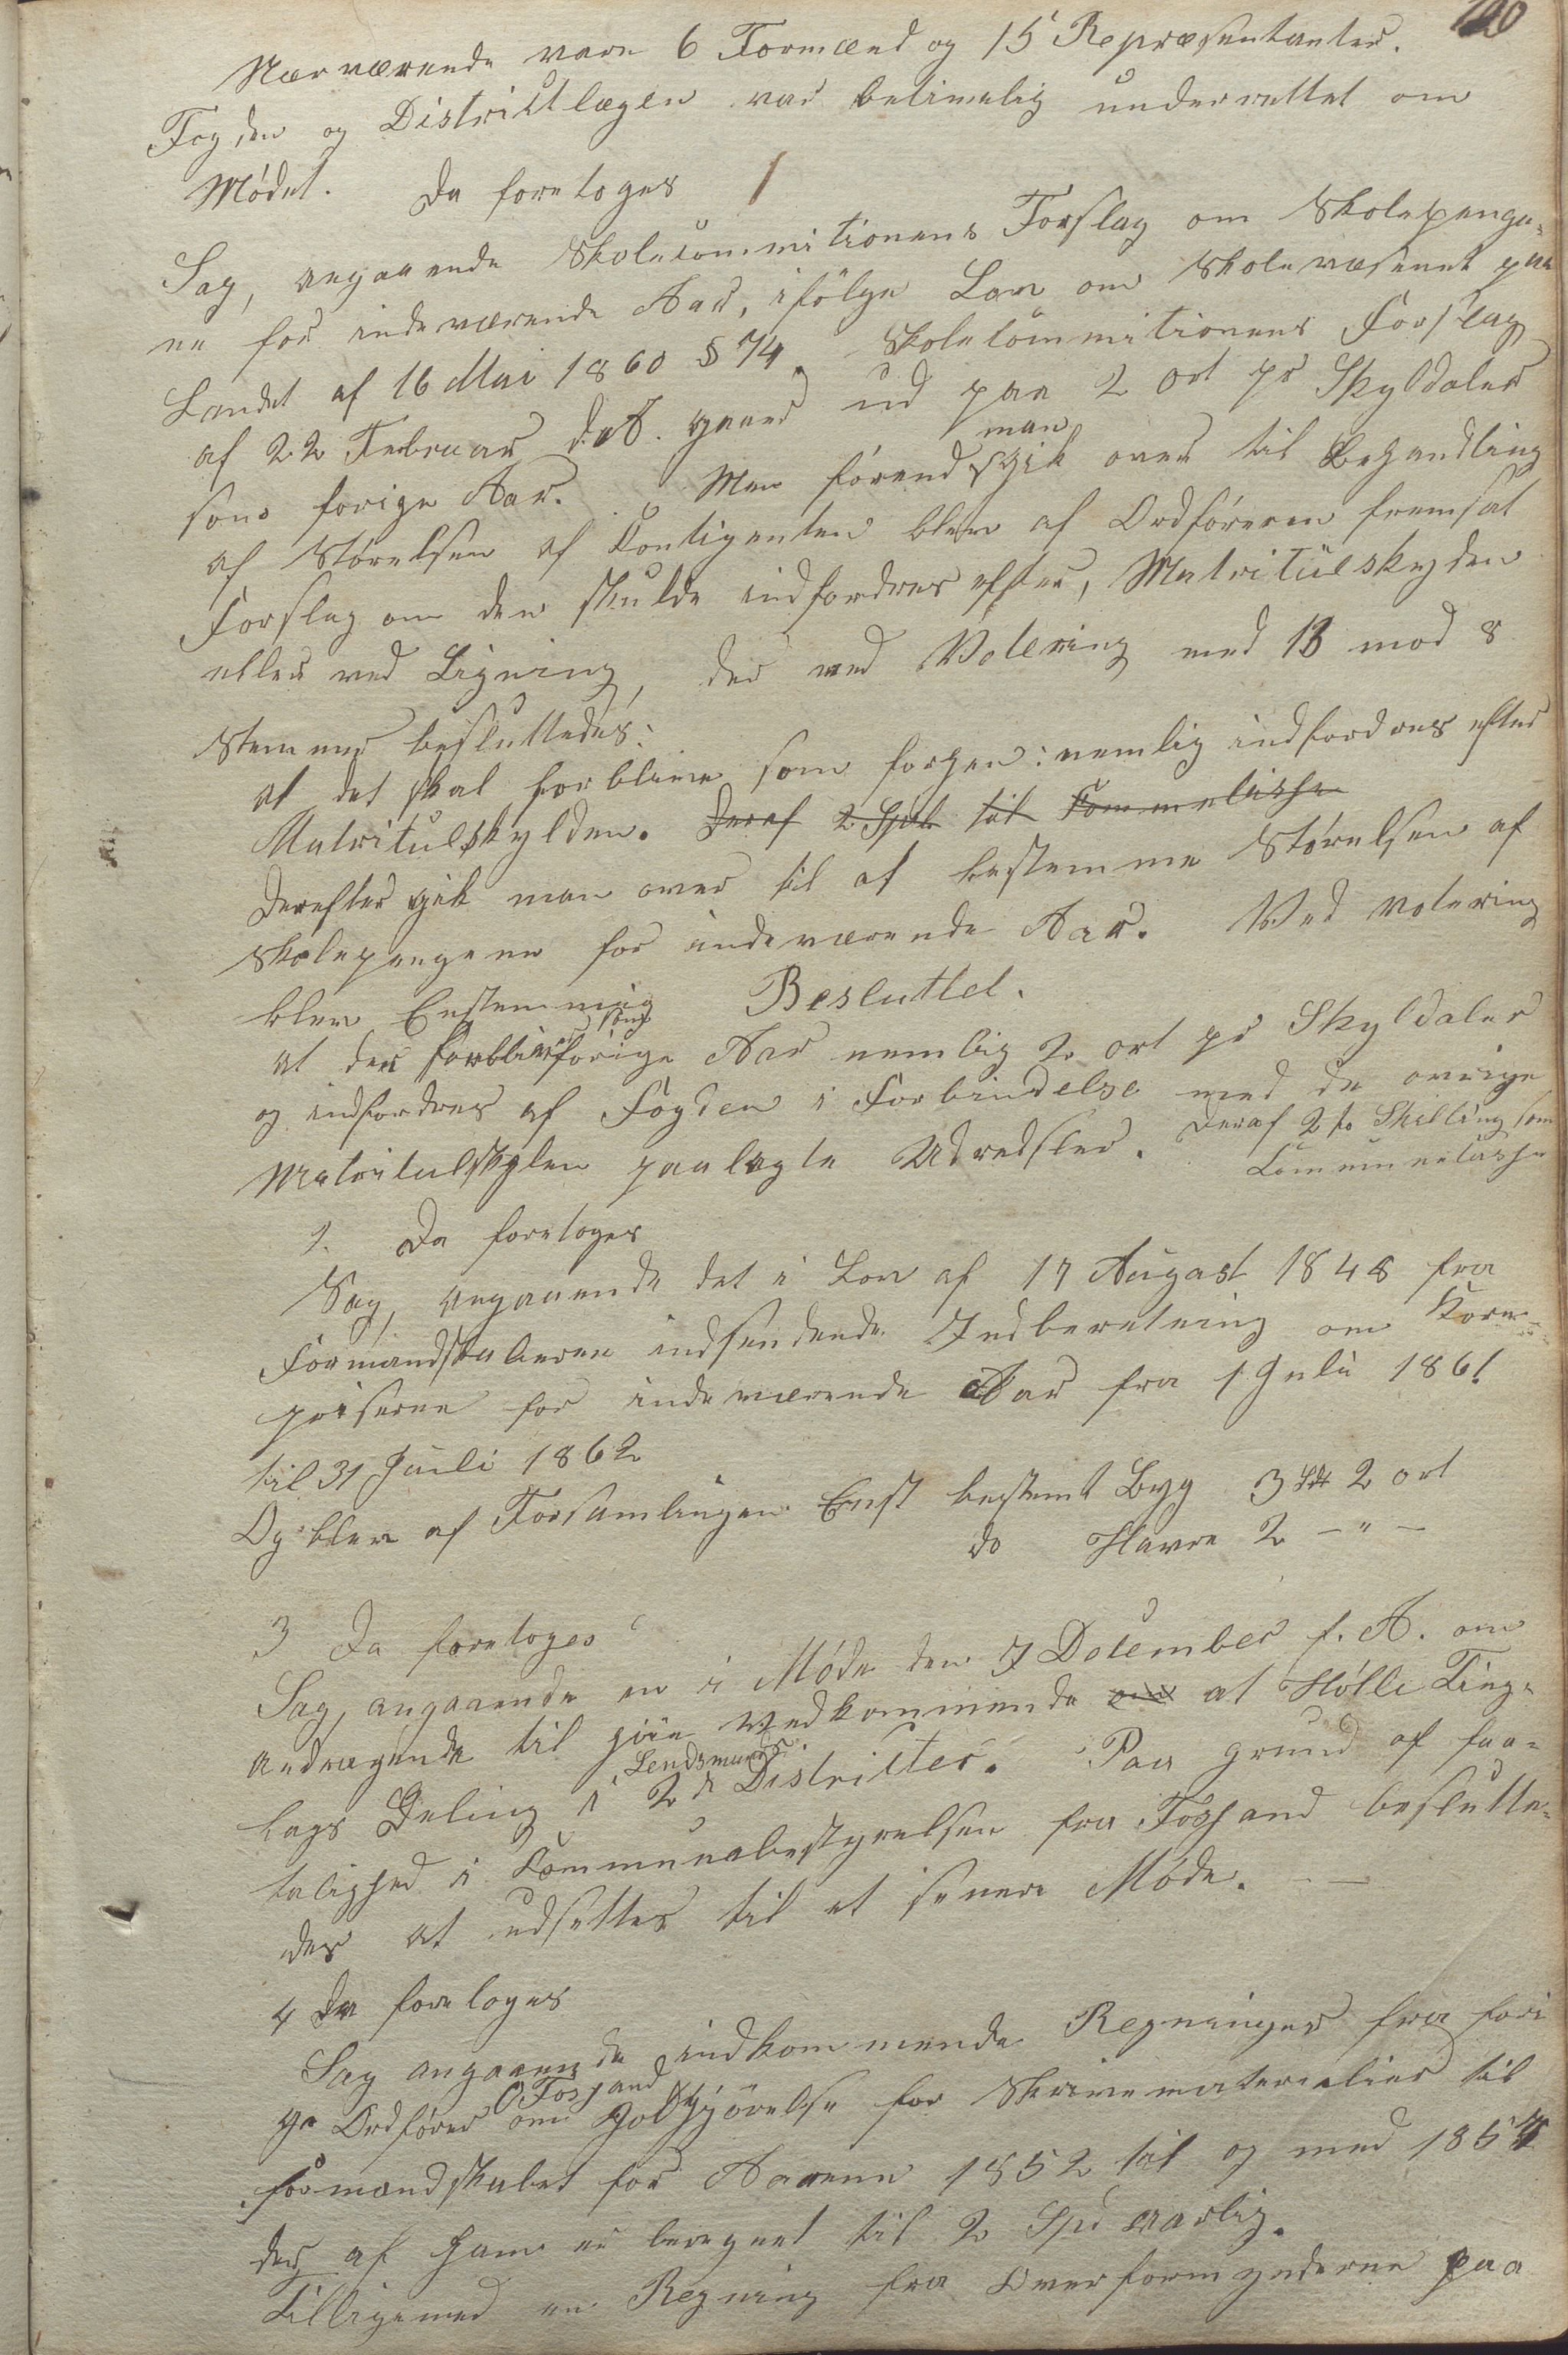 120
Nærværende vare 6 Formænd og 15 Repræsentanter.
Fogden og Districtlægen var betimelig underrettet om
Mødet. Da foretoges 1
Sag, angaaende Skolecommitionens Forslag om Skolepenge-
ne for indeværende Aar, ifölge Lov om Skolevæsenet paa
Landet af 16 Mai 1860 § 74. Skolecommitionens Forslag
af 22 Februar d. A. gaaer ud paa 2 ort pr Skyldaler
som forige Aar. Men förend man gik over til Behandling
af Störelsen af Contigenten blev af Ordföreren fremsat
Forslag om den skulde indfordres efter, Matriculskyden
eller ved Ligning, der ved Votering med 13 mod 8
Stemmer besluttedes:
at det skal forblive som forhen: nemlig indfordres efter
Matriculskylden. Deraf 2 Spd til Communecassen
Derefter gik man over til at bestemme Störelsen af
Skolepengene for indeværende Aar. Ved Votering
blev Enstemmig Besluttet.
at der forbliver som forige Aar nemlig 2 ort pr Skyldaler
og indfordres af Fogden i Forbindelse med de övrige
Matriculskylen paalagte Udredsler. Deraf 2 to Skilling som
Communecasse
1. Da foretoges
Sag, angaaende det i Lov af 17 August 1848 fra
Formandskaberne indsendende Indberetning om Korn-
priserne for indeværende Aar fra 1 Juli 1861
til 31 Juli 1862
Og blev af Forsamlingen Enst bestemt Byg 3 Spd 2 ort
do Havre 2 – " –
3 Da foretoges
Sag, angaaende en i Möde den 7 December f. A. om
Andragende til höie Vedkommende om at Hölle Ting-
lags Deling i 2de Lendsmands Districter. Paa Grund af faa-
talighed i Communebestyrelsen fra Fossand beslutte-
des at udsettes til et senere Möde. – –
4 Da foretoges
Sag angaaende indkommende Regninger fra fori
ge Ordförer O Fossand om Godtgjörelse for Skrivematerialier til
Formandskabet for Aarene 1852 til og med 1857
der af ham er beregnet til 2 Spd aarlig.
Tilligemed en Regning fra Overformynderne paa